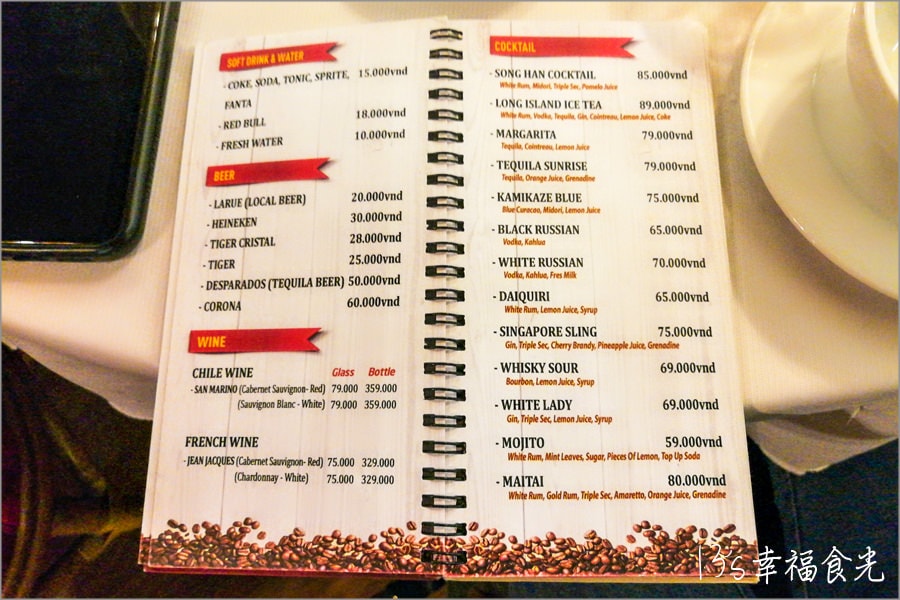 SOFT DRINK & WATER
- COKE, SODA, TONIC, SPRITE, 15.000vnd
FANTA
- RED BULL 18.000vnd
- FRESH WATER 10.000vnd
BEER
- LARUE (LOCAL BEER) 20.000vnd
- HEINEKEN 30.000vnd
- TIGER CRISTAL 28.000vnd
- TIGER 25.000vnd
- DESPARADOS (TEQUILA BEER) 50.000vnd
- CORONA 60.000vnd
WINE
CHILE WINE Glass Bottle
- SAN MARINO (Cabernet Sauvignon- Red) 79.000 359.000
(Sauvignon Blanc - White) 79.000 359.000
FRENCH WINE
- JEAN JACQUES (Cabernet Sauvignon- Red) 75.000 329.000
(Chardonnay - White) 75.000 329.000
COCKTAIL
- SONG HAN COCKTAIL 85.000vnd
White Rum, Midori, Triple Sec, Pomelo Juice
- LONG ISLAND ICE TEA 89.000vnd
White Rum, Vodka, Tequila, Gin, Cointreau, Lemon Juice, Coke
- MARGARITA 79.000vnd
Tequila, Cointreau, Lemon Juice
- TEQUILA SUNRISE 79.000vnd
Tequila, Orange Juice, Grenadine
- KAMIKAZE BLUE 75.000vnd
Blue Curacao, Midori, Lemon Juice
- BLACK RUSSIAN 65.000vnd
Vodka, Kahlua
- WHITE RUSSIAN 70.000vnd
Vodka, Kahlua, Fres Milk
- DAIQUIRI 65.000vnd
White Rum, Lemon Juice, Syrup
- SINGAPORE SLING 75.000vnd
Gin, Triple Sec, Cherry Brandy, Pineapple Juice, Grenadine
- WHISKY SOUR 69.000vnd
Bourbon, Lemon Juice, Syrup
- WHITE LADY 69.000vnd
Gin, Triple Sec, Lemon Juice, Syrup
- MOJITO 59.000vnd
White Rum, Mint Leaves, Sugar, Pieces Of Lemon, Top Up Soda
- MAITAI 80.000vnd
White Rum, Gold Rum, Triple Sec, Amaretto, Orange Juice, Grenadine
幸福食光